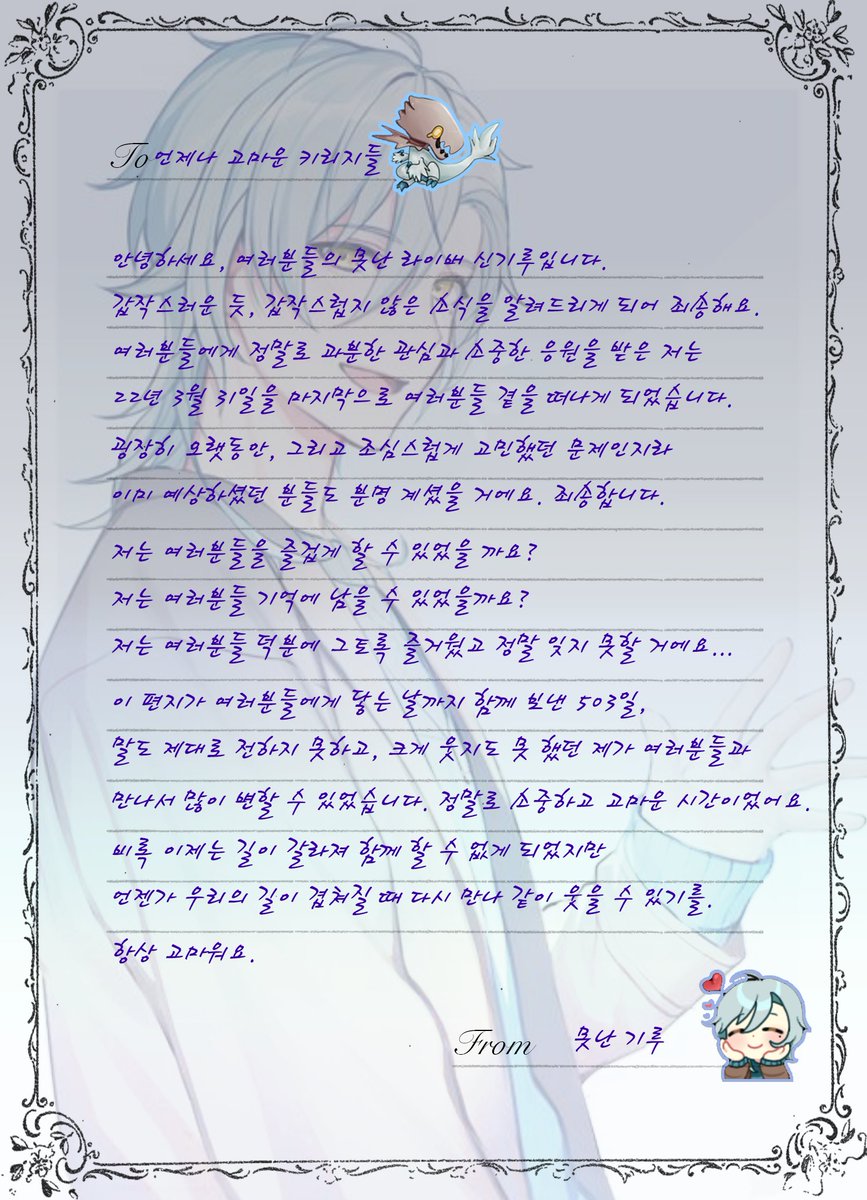 To 언제나 고마운 키리지들
안녕하세요, 여러분들의 못난 라이버 신기루입니다.
갑작스러운 듯, 갑작스럽지 않은 소식을 알려드리게 되어 죄송해요.
여러분들에게 정말로 과분한 관심과 소중한 응원을 받은 저는
22년 3월 31일을 마지막으로 여러분들 곁을 떠나게 되었습니다.
굉장히 오랫동안, 그리고 조심스럽게 고민했던 문제인지라
이미 예상하셨던 분들도 분명 계셨을 거에요. 죄송합니다.
저는 여러분들을 즐겁게 할 수 있었을 까요?
저는 여러분들 기억에 남을 수 있었을까요?
저는 여러분들 덕분에 그토록 즐거웠고 정말 잊지 못할 거에요...
이 편지가 여러분들에게 닿는 날까지 함께 보낸 503일,
말도 제대로 전하지 못하고, 크게 웃지도 못 했던 제가 여러분들과
만나서 많이 변할 수 있었습니다. 정말로 소중하고 고마운 시간이었어요.
비록 이제는 길이 갈라져 함께 할 수 없게 되었지만
언젠가 우리의 길이 겹쳐질 때 다시 만나 같이 웃을 수 있기를.
항상 고마워요.
From 못난 기루